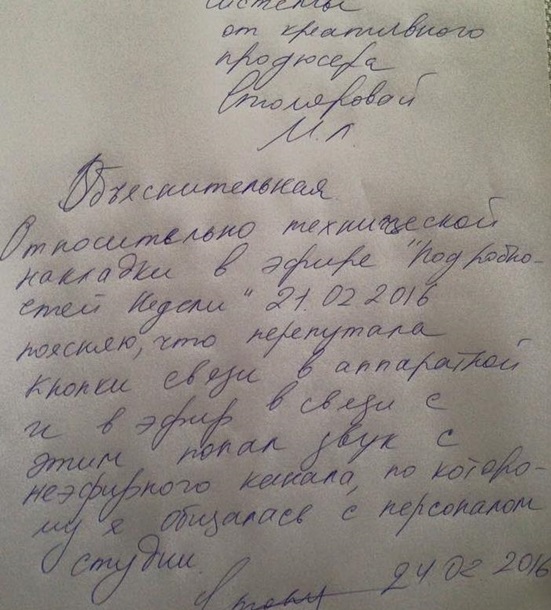 системы
от креативного
продюсера
Столяровой
М.Л.
Объяснительная
Относительно технической
накладки в эфире "Подробно-
стей Недели" 21.02 2016
поясняю, что перепутала
кнопки связи в аппаратной
и в эфир в связи с
этим попал звук с
неэфирного канала, по которо-
му я общалась с персоналом
студии.
24 02 2016